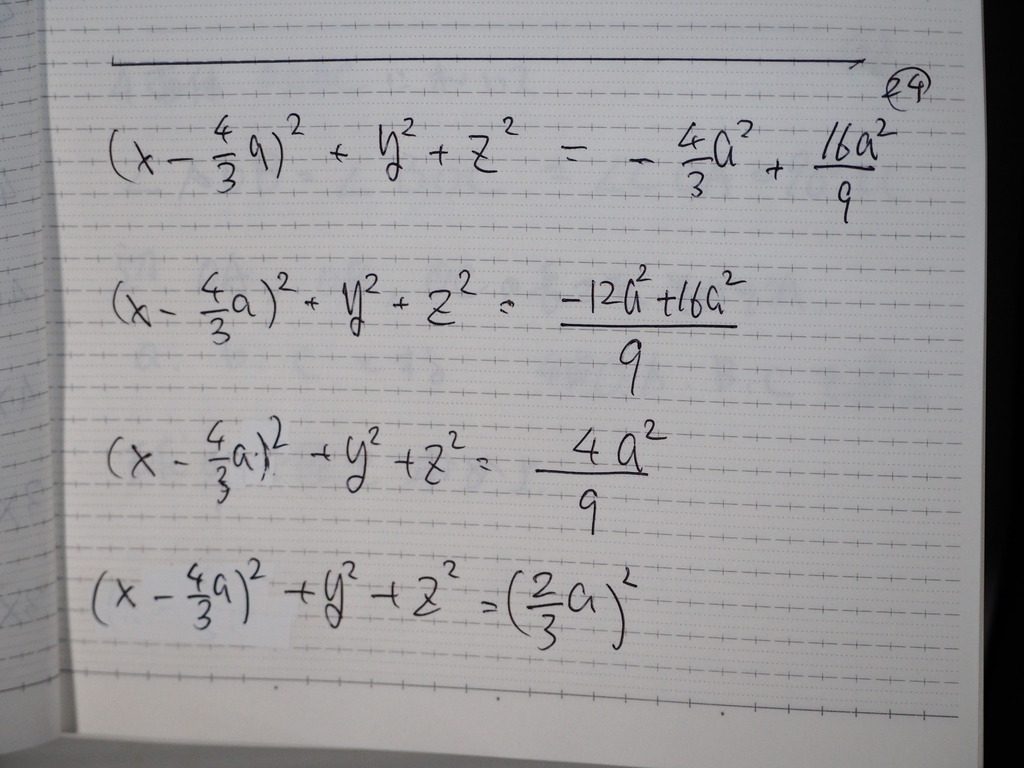 (x - 4/3 a)² + y² + z² = - 4/3 a² + 16a²/9
(x - 4/3 a)² + y² + z² = (-12a² + 16a²)/9
(x - 4/3 a)² + y² + z² = 4a²/9
(x - 4/3 a)² + y² + z² = (2/3 a)²